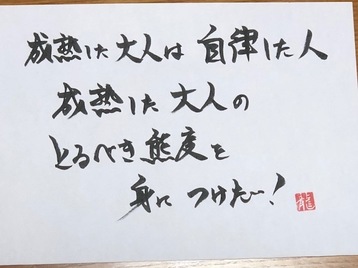 成熟した大人は 自律した人
成熟した大人の
とるべき態度を
身に つけたい!